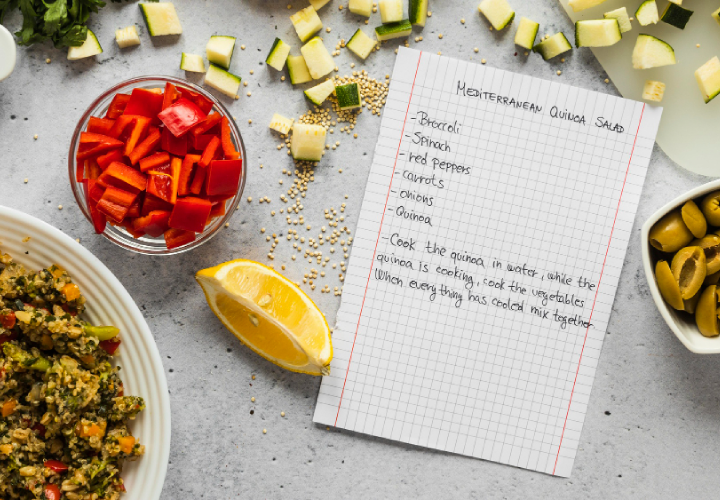 MEDITERRANEAN QUINOA SALAD
- Broccoli
- Spinach
- red peppers
- carrots
- onions
- Quinoa
- Cook the quinoa in water, while the
quinoa is cooking, cook the vegetables
When everything has cooled mix together